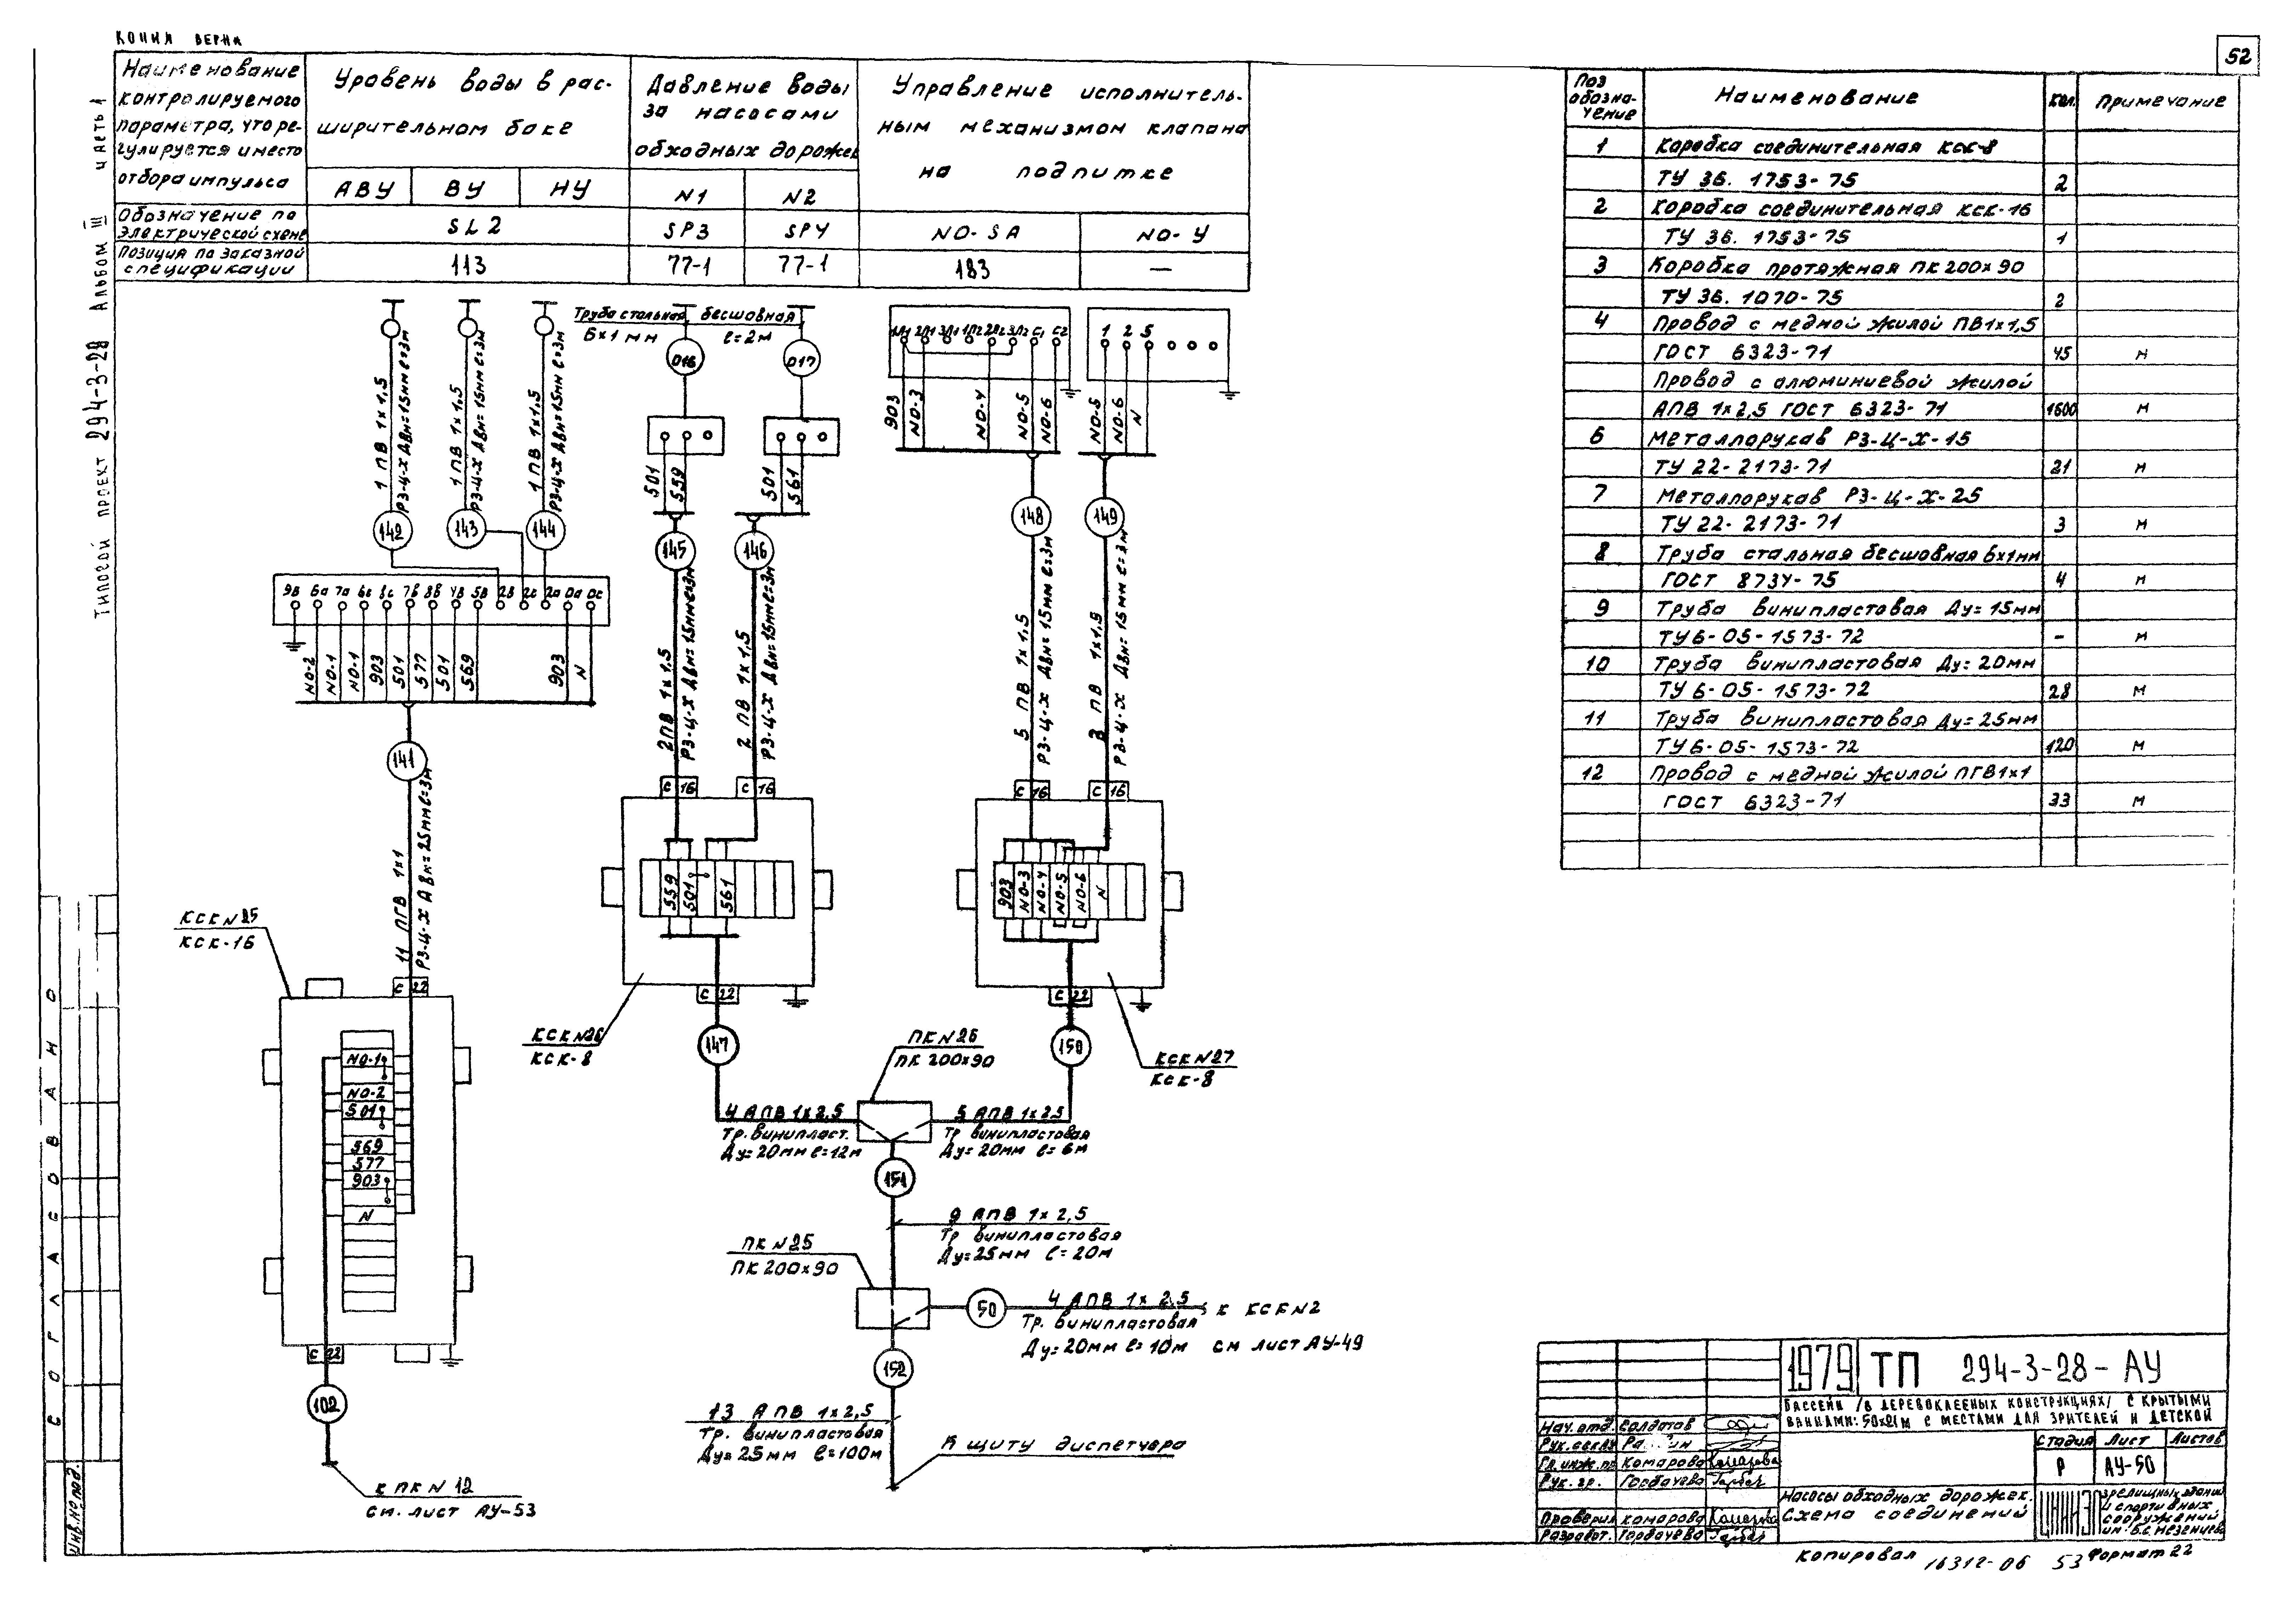 КОПИЯ ВЕРНА
52
Типовой проект 294-3-28 Альбом III часть 1
Наименование
контролируемого
параметра, что ре-
гулируется и место
отбора импульса
Уровень воды в рас-
ширительном баке
Давление воды
за насосами
обходных дорожек
Управление исполнитель-
ным механизмом клапана
на подпитке
АВУ ВУ НУ N1 N2
Обозначение по
электрической схеме
SL2 SP3 SP4 NO-SA NO-У
Позиция по заказной
спецификации
113 77-1 77-1 183 —
Труба стальная бесшовная
6×1 мм ℓ=2м
016 017
1Л1 2Л1 3Л1 1Л2 2Л2 3Л2 С1 С2
1 2 5
903 NO-3 NO-4 NO-5 NO-6
NO-5 NO-6 N
1 ПВ 1×1,5
РЗ-Ц-Х Двн=15мм ℓ=3м
1 ПВ 1×1,5
РЗ-Ц-Х Двн=15мм ℓ=3м
1 ПВ 1×1,5
РЗ-Ц-Х Двн=15мм ℓ=3м
501 559
501 561
142 143 144 145 146 148 149
9в 6а 7а 6с 8с 7в 8в 4в 5в 2в 2с 2а 0а 0с
NO-2 NO-1 NO-1 903 501 577 501 569 903 N
2ПВ 1×1,5
РЗ-Ц-Х Двн=15мм ℓ=3м
2 ПВ 1×1,5
РЗ-Ц-Х Двн=15мм ℓ=3м
5 ПВ 1×1,5
РЗ-Ц-Х Двн=15мм ℓ=3м
3 ПВ 1×1,5
РЗ-Ц-Х Двн=15мм ℓ=3м
141
11 ПГВ 1×1
РЗ-Ц-Х Двн=25мм ℓ=3м
С 16 С 16 С 16 С 16
559 501 561
903 NO-3 NO-4 NO-5 NO-6 N
КСК N25
КСК-16
С 22
С 22
С 22
КСК N26
КСК-8
147
ПК N26
ПК 200×90
150
КСК N27
КСК-8
NO-1
NO-2
501
569
577
903
N
4 АПВ 1×2,5
Тр. винипласт.
Ду=20мм ℓ=12м
5 АПВ 1×2,5
Тр винипластовая
Ду=20мм ℓ=6м
151
9 АПВ 1×2,5
Тр винипластовая
Ду=25мм ℓ=20м
ПК N25
ПК 200×90
50
4 АПВ 1×2,5
к КСК N2
Тр. винипластовая
Ду=20мм ℓ=10м см лист АУ-49
152
С 22
102
13 АПВ 1×2,5
Тр. винипластовая
Ду=25мм ℓ=100м
К щиту диспетчера
к ПК N 12
см. лист АУ-53
СОГЛАСОВАНО
Инв.N под.
Поз обозна-чение Наименование Кол. Примечание
1 Коробка соединительная КСК-8
ТУ 36. 1753-75 2
2 Коробка соединительная КСК-16
ТУ 36. 1753-75 1
3 Коробка протяжная ПК 200×90
ТУ 36. 1070-75 2
4 Провод с медной жилой ПВ1×1,5
ГОСТ 6323-71 45 м
Провод с алюминиевой жилой
АПВ 1×2,5 ГОСТ 6323-71 1600 м
6 Металлорукав РЗ-Ц-Х-15
ТУ 22-2173-71 21 м
7 Металлорукав РЗ-Ц-Х-25
ТУ 22-2173-71 3 м
8 Труба стальная бесшовная 6×1мм
ГОСТ 8734-75 4 м
9 Труба винипластовая Ду=15мм
ТУ6-05-1573-72 - м
10 Труба винипластовая Ду=20мм
ТУ6-05-1573-72 28 м
11 Труба винипластовая Ду=25мм
ТУ6-05-1573-72 120 м
12 Провод с медной жилой ПГВ1×1
ГОСТ 6323-71 33 м
1979 ТП 294-3-28-АУ
БАССЕЙН /В ДЕРЕВОКЛЕЕНЫХ КОНСТРУКЦИЯХ/ С КРЫТЫМИ
ВАННАМИ: 50×21М С МЕСТАМИ ДЛЯ ЗРИТЕЛЕЙ И ДЕТСКОЙ
Нач. отд. Солдатов
Рук. сект.
Гл. инж. пр. Комарова
Рук. гр. Горбачева
Проверил Комарова
Разработ. Горбачева
Стадия Лист Листов
Р АУ-50
Насосы обходных дорожек.
Схема соединений
ЦНИИЭП
зрелищных зданий
и спортивных
сооружений
им. Б.С. Мезенцева
Копировал 16312-06 53 Формат 22